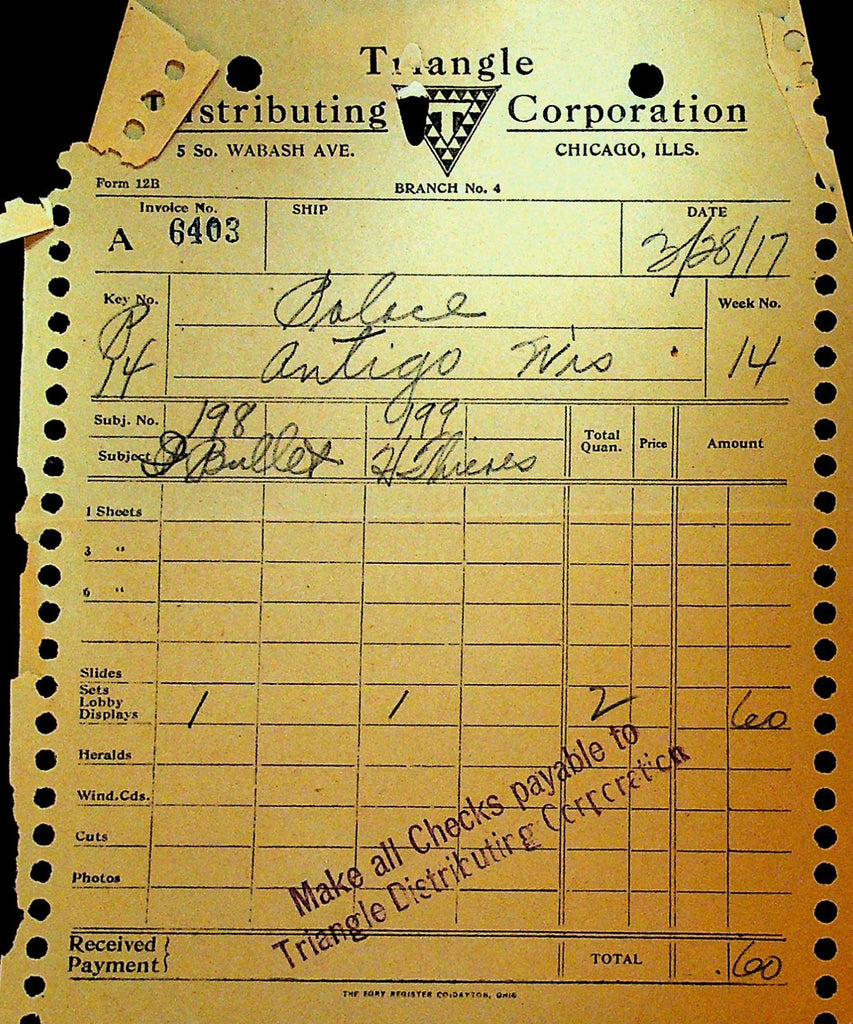 Triangle
Distributing Corporation
5 So. WABASH AVE. CHICAGO, ILLS.
Form 12B
BRANCH No. 4
Invoice No. SHIP DATE
A 6403 3/28/17
Key No. Palace Week No.
P 14 Antigo Wis 14
Subj. No. 198 199 Total Quan. Price Amount
Subject Bullet H Thieves
1 Sheets
3 "
6 "
Slides
Sets
Lobby
Displays 1 1 2 60
Heralds
Wind.Cds.
Cuts
Photos
Make all Checks payable to
Triangle Distributing Corporation
Received
Payment TOTAL .60
THE EGRY REGISTER CO. DAYTON, OHIO